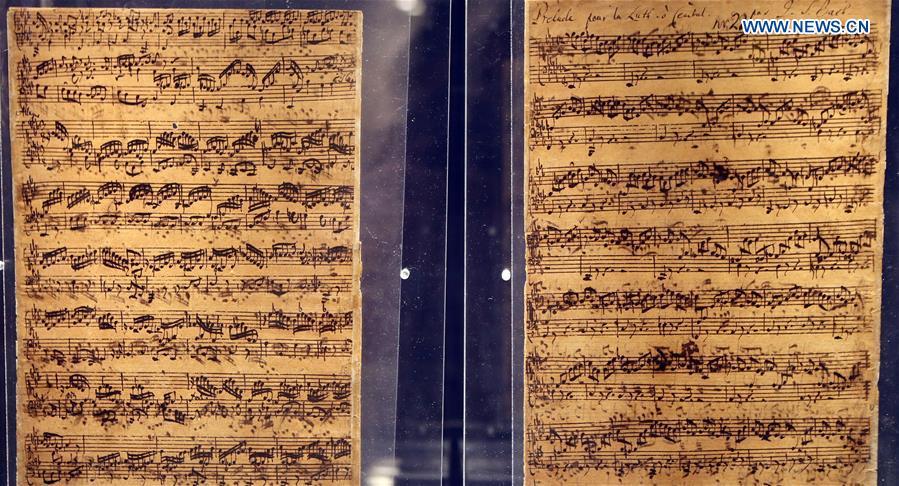 Prelude pour la Luth. ò Cembal.
par J. S. Bach
WWW.NEWS.CN
Allegro